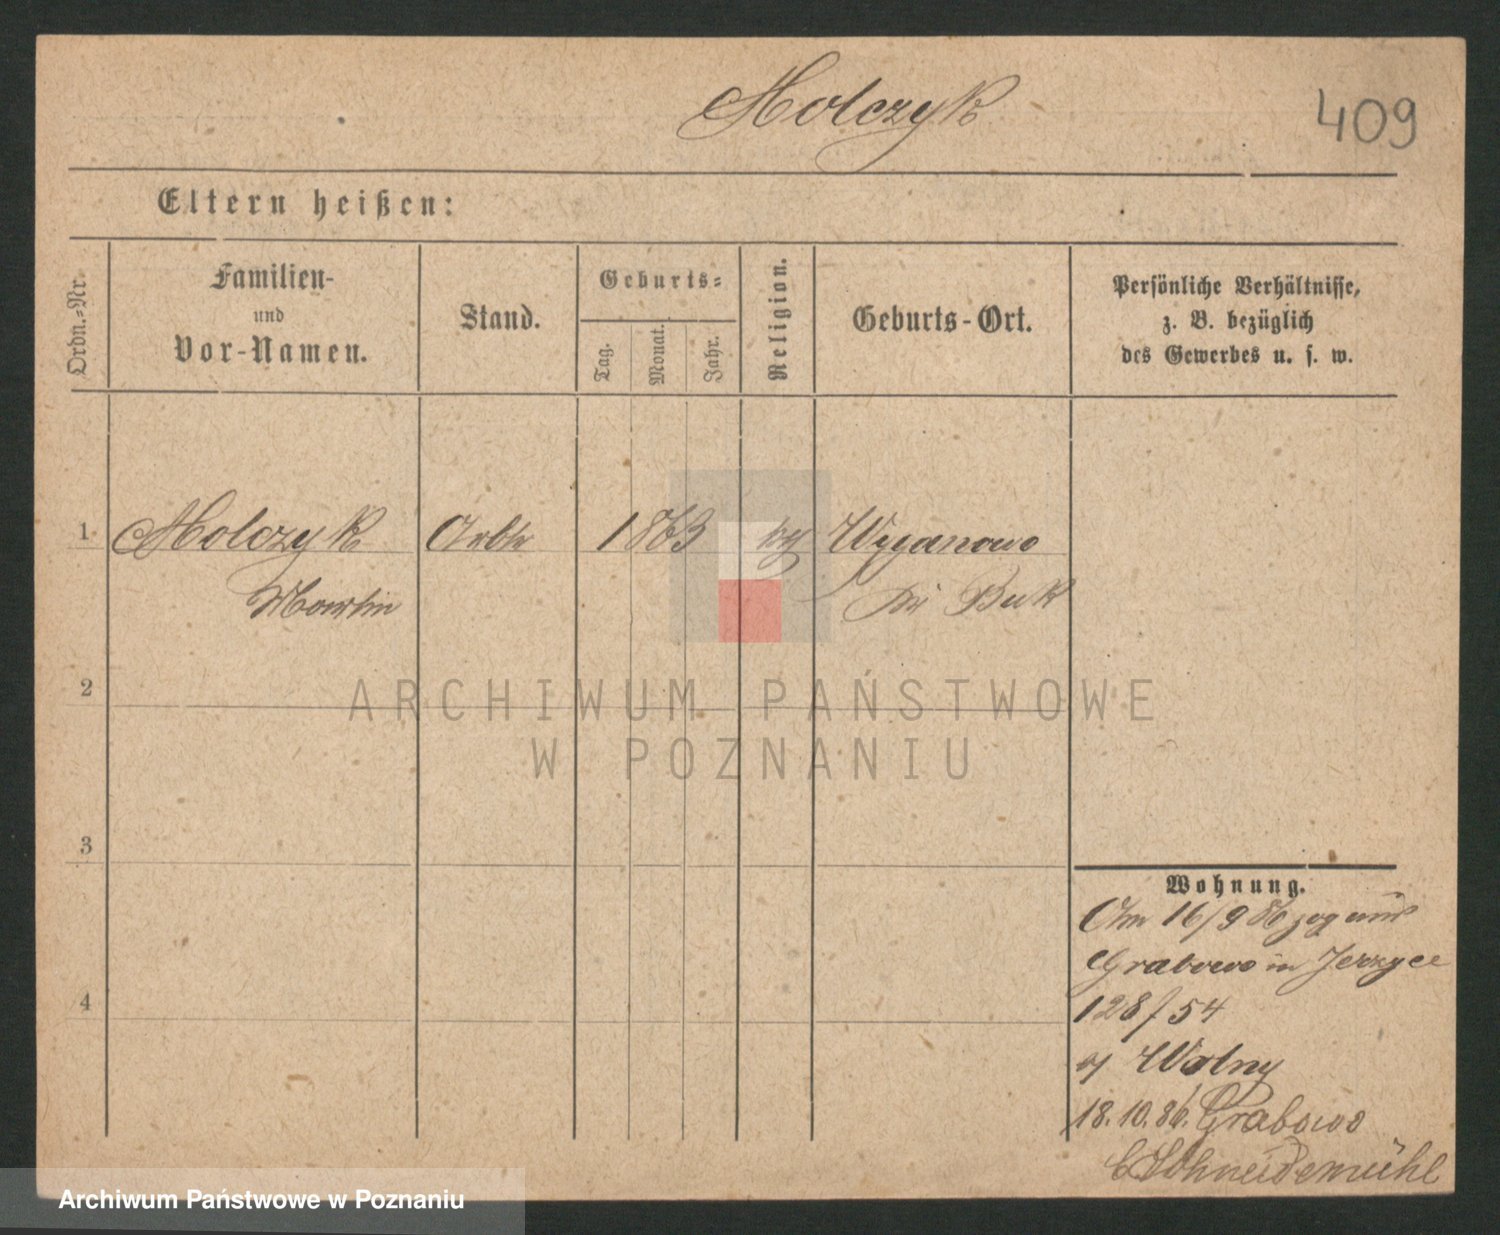 Molczyk
409
Eltern heißen:
Ordn.-Nr.
Familien-
und
Vor-Namen.
Stand.
Geburts-
Tag.
Monat.
Jahr.
Religion.
Geburts-Ort.
Persönliche Verhältnisse,
z. B. bezüglich
des Gewerbes u. s. w.
1 Molczyk Arbtr 1863 Wyganowo
Martin Kr Buk
2
3
4
ARCHIWUM PAŃSTWOWE
W POZNANIU
Wohnung.
Am 16/9 86 zog aus
Grabowo in Jerzyce
128/54
Wolny
18.10.86. Grabowo
b Schneidemühl
Archiwum Państwowe w Poznaniu